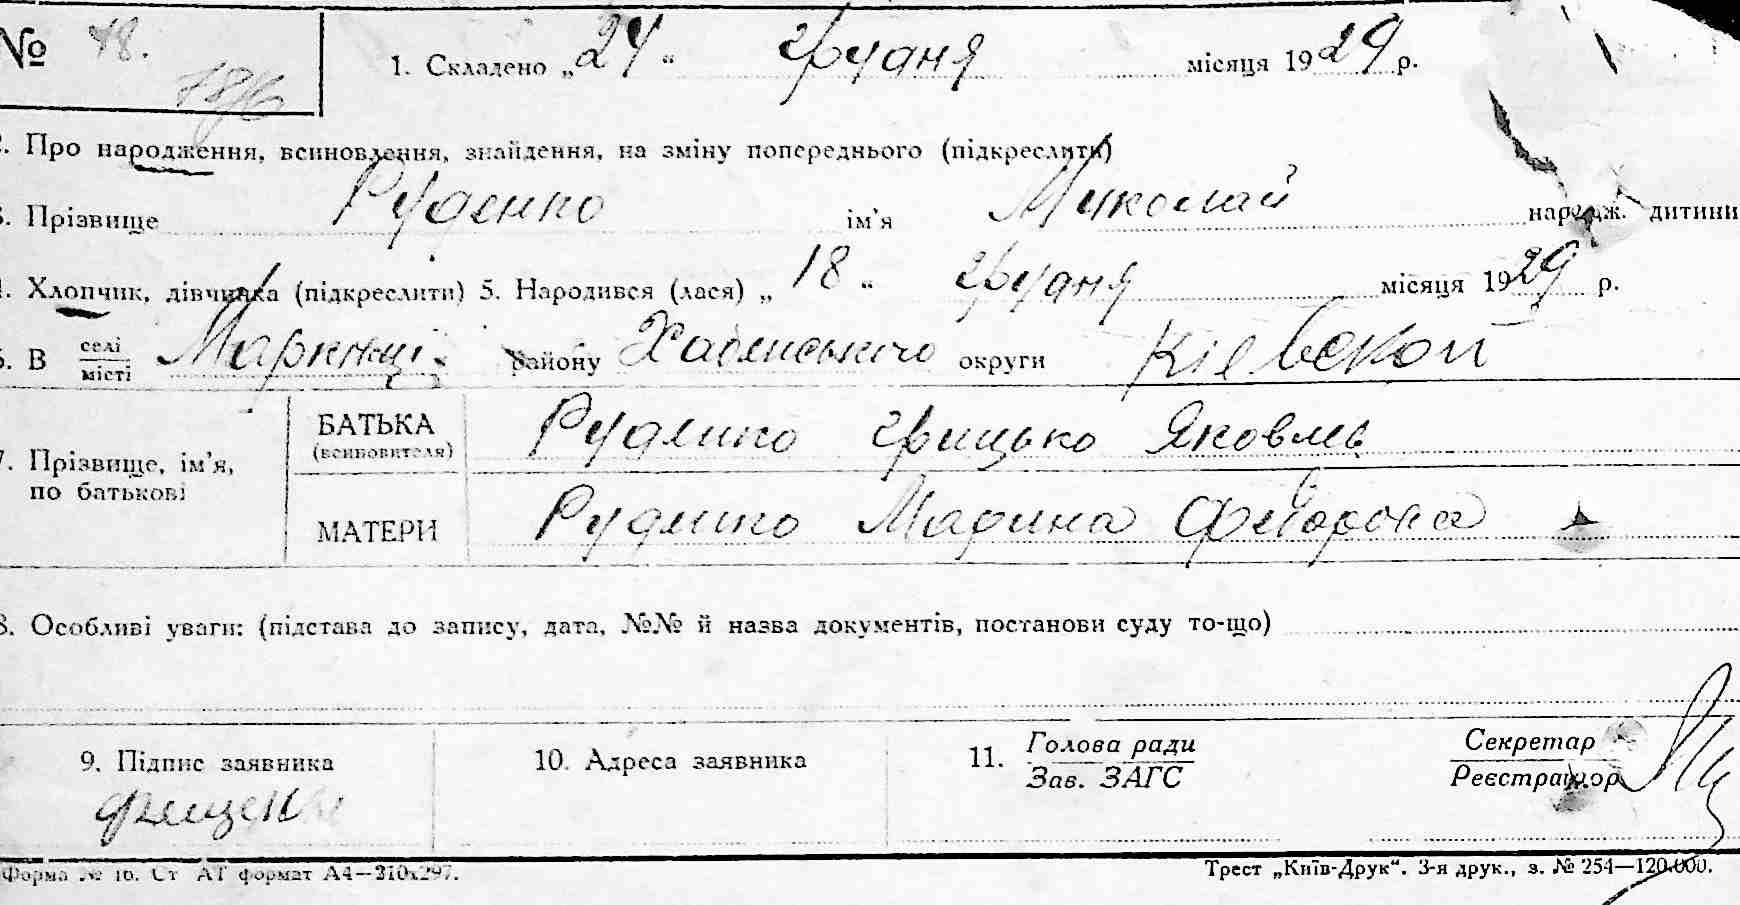 № 48.
1. Складено „24“ грудня місяця 1929 р.
2. Про народження, всиновлення, знайдення, на зміну попереднього (підкреслити)
3. Прізвище Руденко ім’я Миколай народж. дитини
4. Хлопчик, дівчинка (підкреслити) 5. Народився (лася) „18“ грудня місяця 1929 р.
6. В селі місті району Хабенського округи Кіевской
7. Прізвище, ім’я, по батькові
БАТЬКА (всиновителя) Руденко Грицько Яковлев
МАТЕРИ Руденко Марина
8. Особливі уваги: (підстава до запису, дата, №№ й назва документів, постанови суду то-що)
9. Підпис заявника 10. Адреса заявника 11. Голова ради Секретар
Зав. ЗАГС Реєстратор
Форма № 1б. Ст АТ формат А4—210х297. Трест „Київ-Друк“. 3-я друк., з. № 254—120.000.